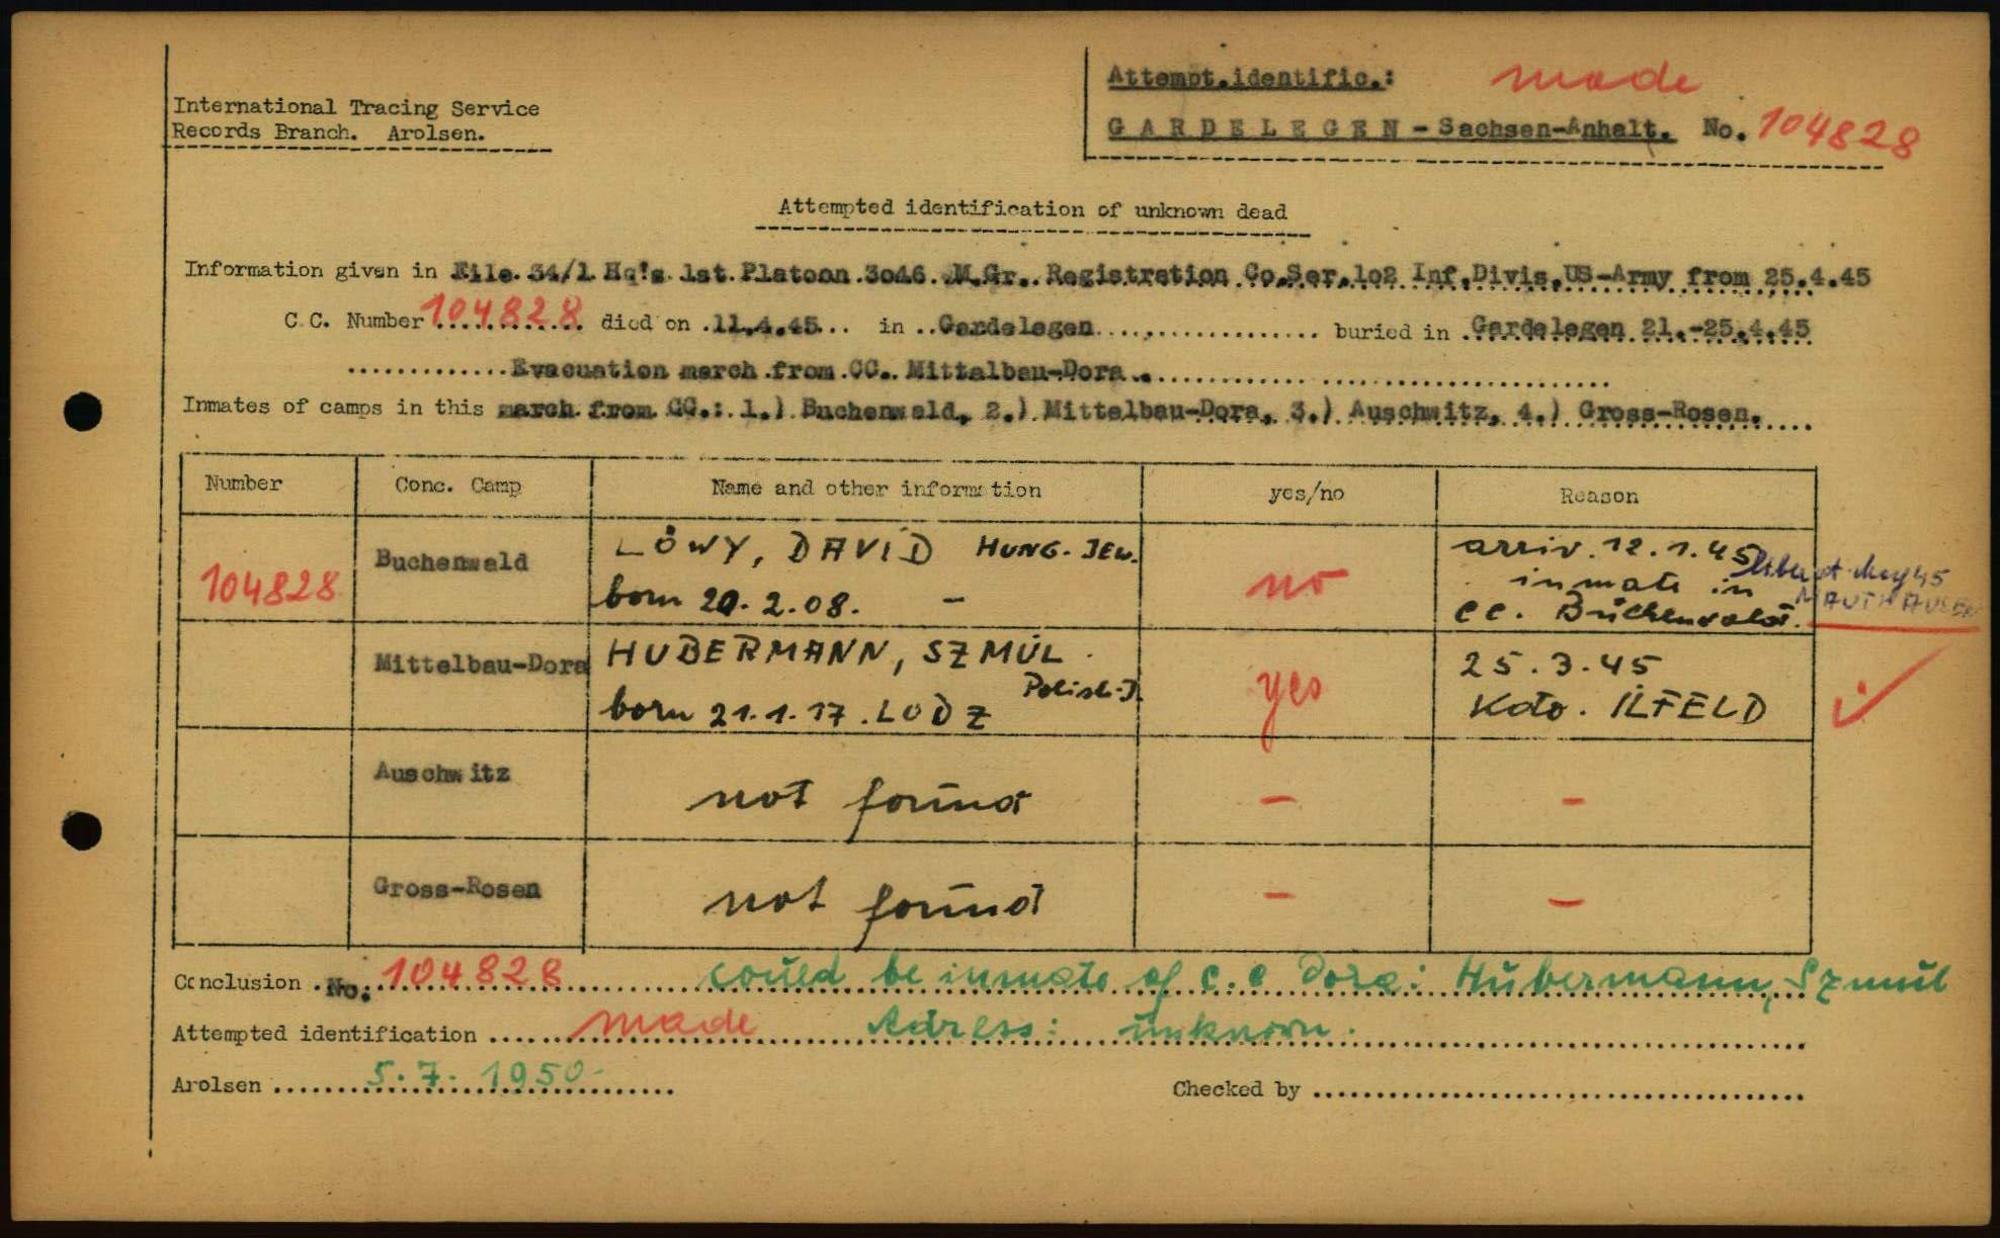 International Tracing Service
Records Branch. Arolsen.
Attempt.identific.: made
GARDELEGEN - Sachsen-Anhalt. No. 104828
Attempted identification of unknown dead
Information given in File. 34/1 Hq's 1st. Platoon. 3o46. M.Gr.. Registration Co.Ser.1o2 Inf.Divis.US-Army from 25.4.45
C.C. Number 104828 died on 11.4.45 in Gardelegen buried in Gardelegen 21.-25.4.45
Evacuation march from CC. Mittalbau-Dora.
Inmates of camps in this march from CC.: 1.) Buchenwald, 2.) Mittelbau-Dora, 3.) Auschwitz, 4.) Gross-Rosen.
Number Conc. Camp Name and other information yes/no Reason
104828 Buchenwald LÖWY, DAVID HUNG. JEW. born 20.2.08. - no arriv. 12.1.45 inmate in CC. Buchenwald.
May 45
MAUTHAUSEN
Mittelbau-Dora HUBERMANN, SZMUL Polish-J. born 21.1.17. LODZ yes 25.3.45 Kdo. ILFELD
Auschwitz not found - -
Gross-Rosen not found - -
Conclusion No. 104828 could be inmate of c.c Dora: Hubermann, Szmul
Attempted identification made Adress: unknown.
Arolsen 5.7.1950 Checked by